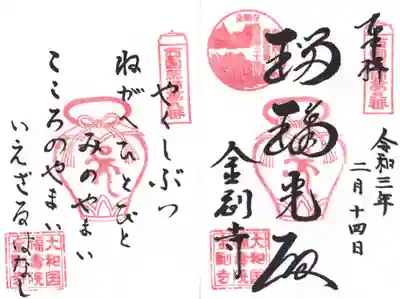 奉拝
瑠璃光殿
金剛寺
令和三年
二月十四日
大和国
金剛寺
やくしぶつ
ねがへひとびと
みのやまい
こころのやまい
いえざる
はなし
大和国
金剛寺